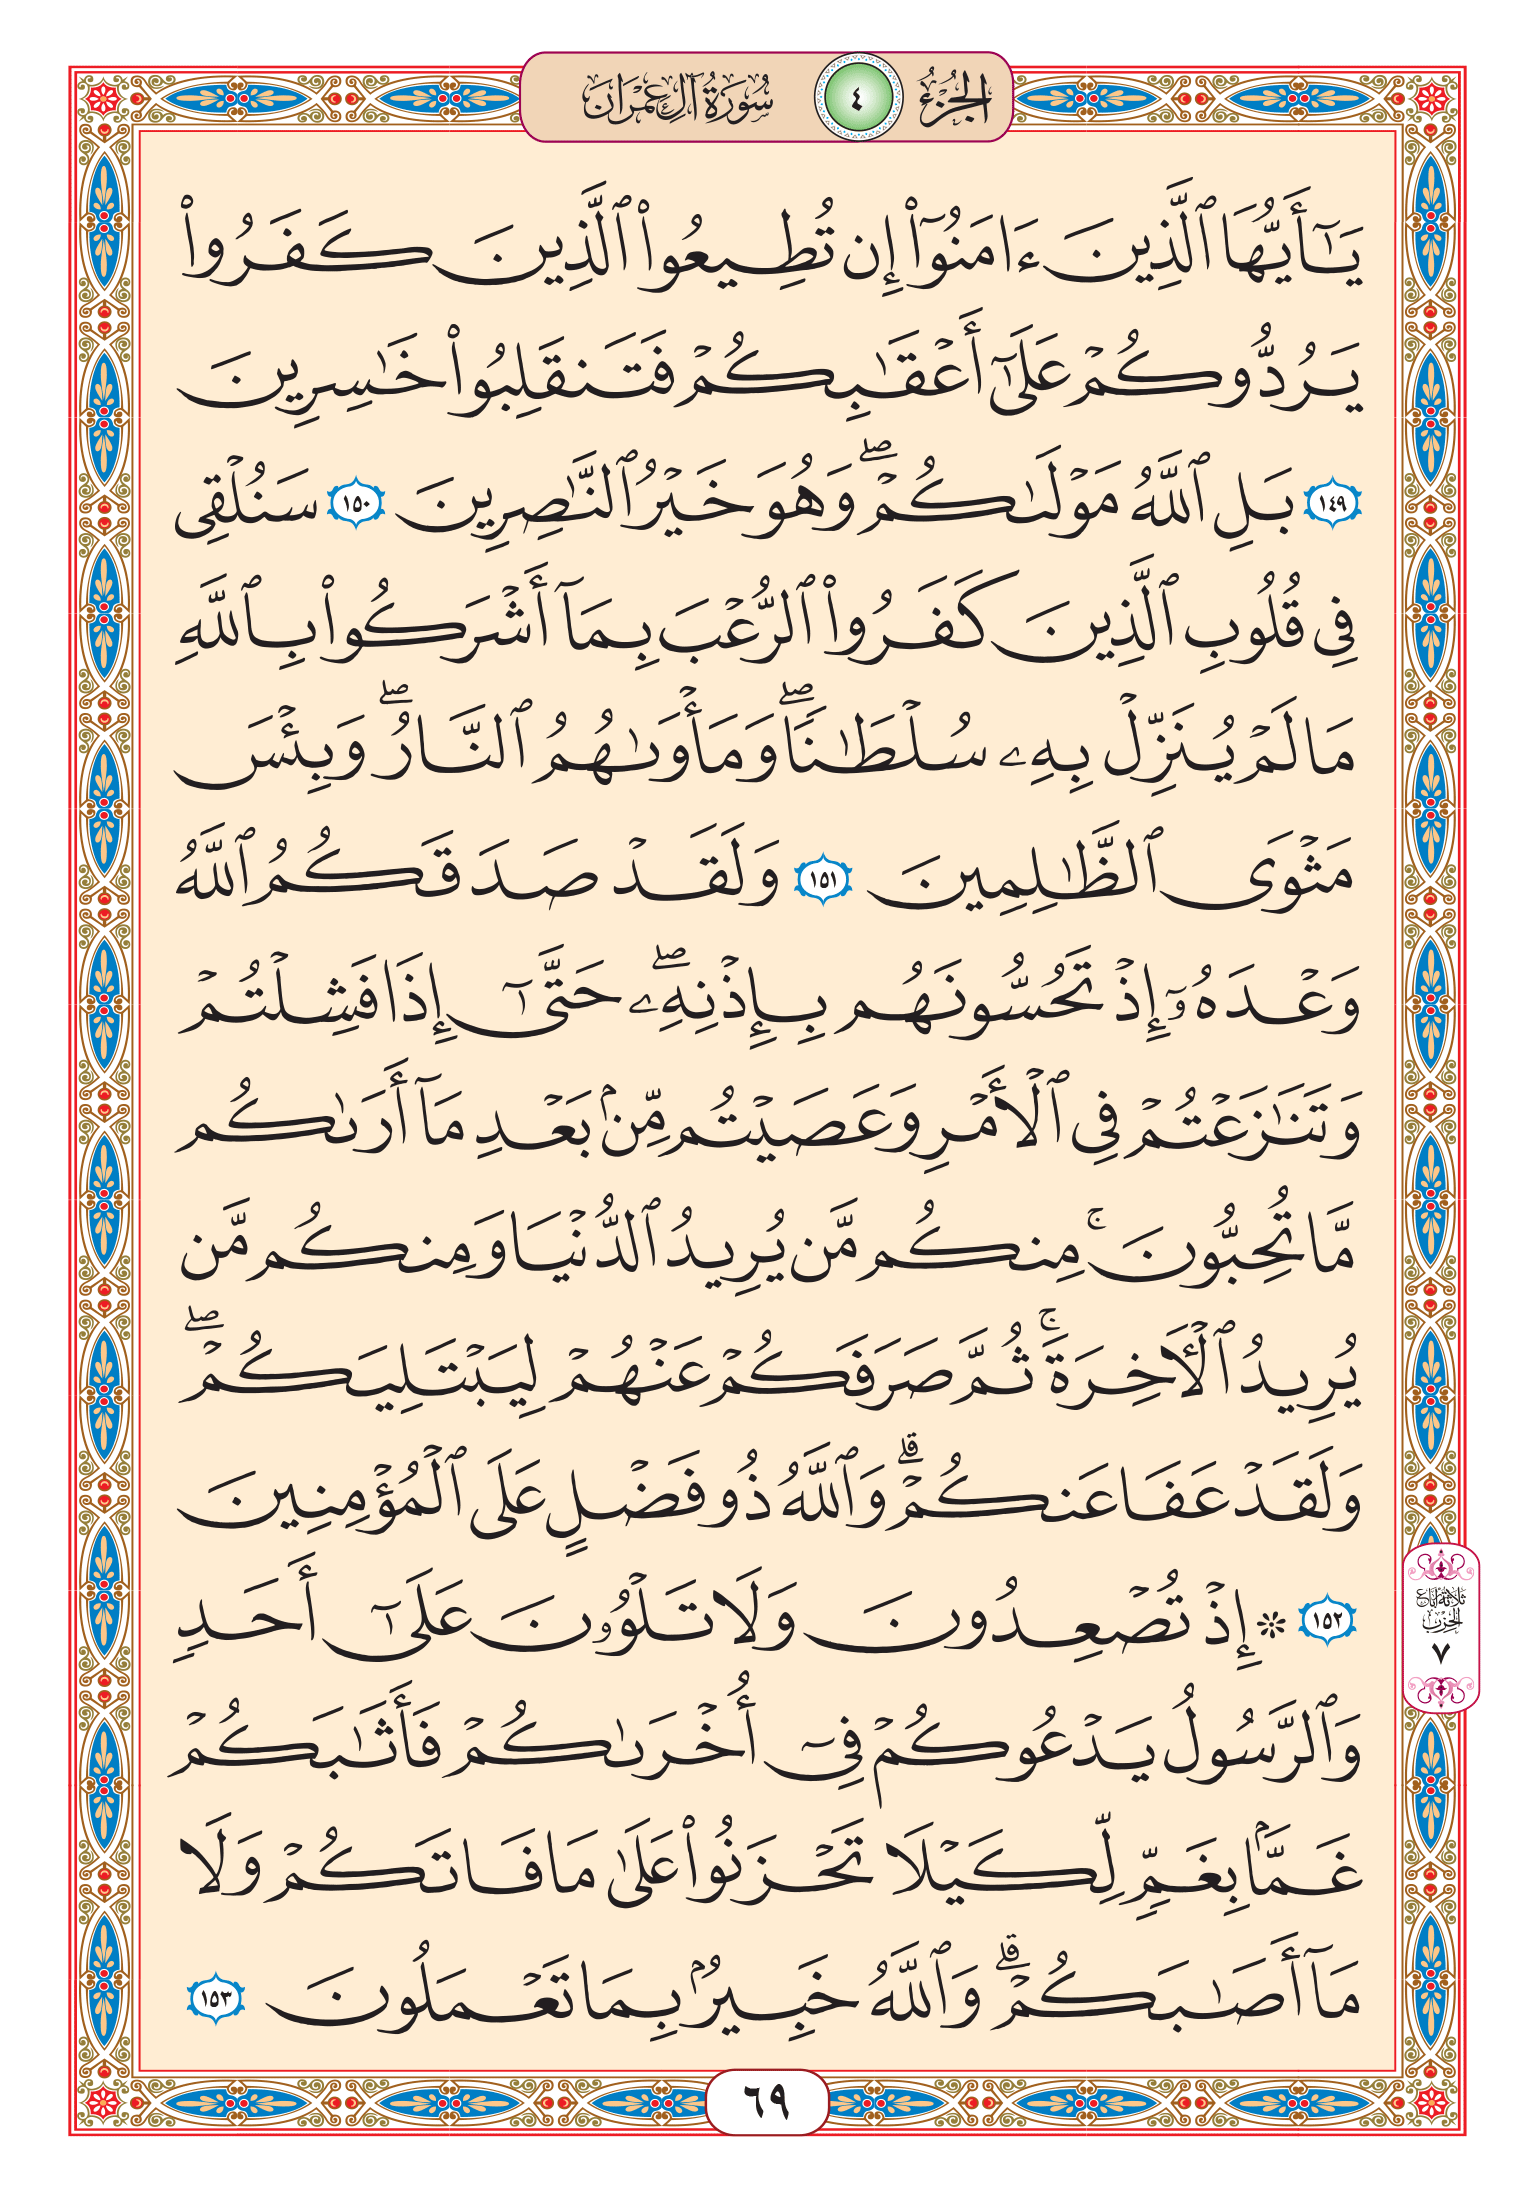 الجزء ٤ سورة آل عمران
يَٰٓأَيُّهَا ٱلَّذِينَ ءَامَنُوٓا۟ إِن تُطِيعُوا۟ ٱلَّذِينَ كَفَرُوا۟
يَرُدُّوكُمْ عَلَىٰٓ أَعْقَٰبِكُمْ فَتَنقَلِبُوا۟ خَٰسِرِينَ
١٤٩ بَلِ ٱللَّهُ مَوْلَىٰكُمْ ۖ وَهُوَ خَيْرُ ٱلنَّٰصِرِينَ ١٥٠ سَنُلْقِى
فِى قُلُوبِ ٱلَّذِينَ كَفَرُوا۟ ٱلرُّعْبَ بِمَآ أَشْرَكُوا۟ بِٱللَّهِ
مَا لَمْ يُنَزِّلْ بِهِۦ سُلْطَٰنًا ۖ وَمَأْوَىٰهُمُ ٱلنَّارُ ۖ وَبِئْسَ
مَثْوَى ٱلظَّٰلِمِينَ ١٥١ وَلَقَدْ صَدَقَكُمُ ٱللَّهُ
وَعْدَهُۥٓ إِذْ تَحُسُّونَهُم بِإِذْنِهِۦ ۖ حَتَّىٰٓ إِذَا فَشِلْتُمْ
وَتَنَٰزَعْتُمْ فِى ٱلْأَمْرِ وَعَصَيْتُم مِّنۢ بَعْدِ مَآ أَرَىٰكُم
مَّا تُحِبُّونَ ۚ مِنكُم مَّن يُرِيدُ ٱلدُّنْيَا وَمِنكُم مَّن
يُرِيدُ ٱلْءَاخِرَةَ ۚ ثُمَّ صَرَفَكُمْ عَنْهُمْ لِيَبْتَلِيَكُمْ ۖ
وَلَقَدْ عَفَا عَنكُمْ ۗ وَٱللَّهُ ذُو فَضْلٍ عَلَى ٱلْمُؤْمِنِينَ
١٥٢ ۞ إِذْ تُصْعِدُونَ وَلَا تَلْوُۥنَ عَلَىٰٓ أَحَدٍ
وَٱلرَّسُولُ يَدْعُوكُمْ فِىٓ أُخْرَىٰكُمْ فَأَثَٰبَكُمْ
غَمًّۢا بِغَمٍّ لِّكَيْلَا تَحْزَنُوا۟ عَلَىٰ مَا فَاتَكُمْ وَلَا
مَآ أَصَٰبَكُمْ ۗ وَٱللَّهُ خَبِيرٌۢ بِمَا تَعْمَلُونَ ١٥٣
ثلاثة أرباع
الحزب
٧
٦٩